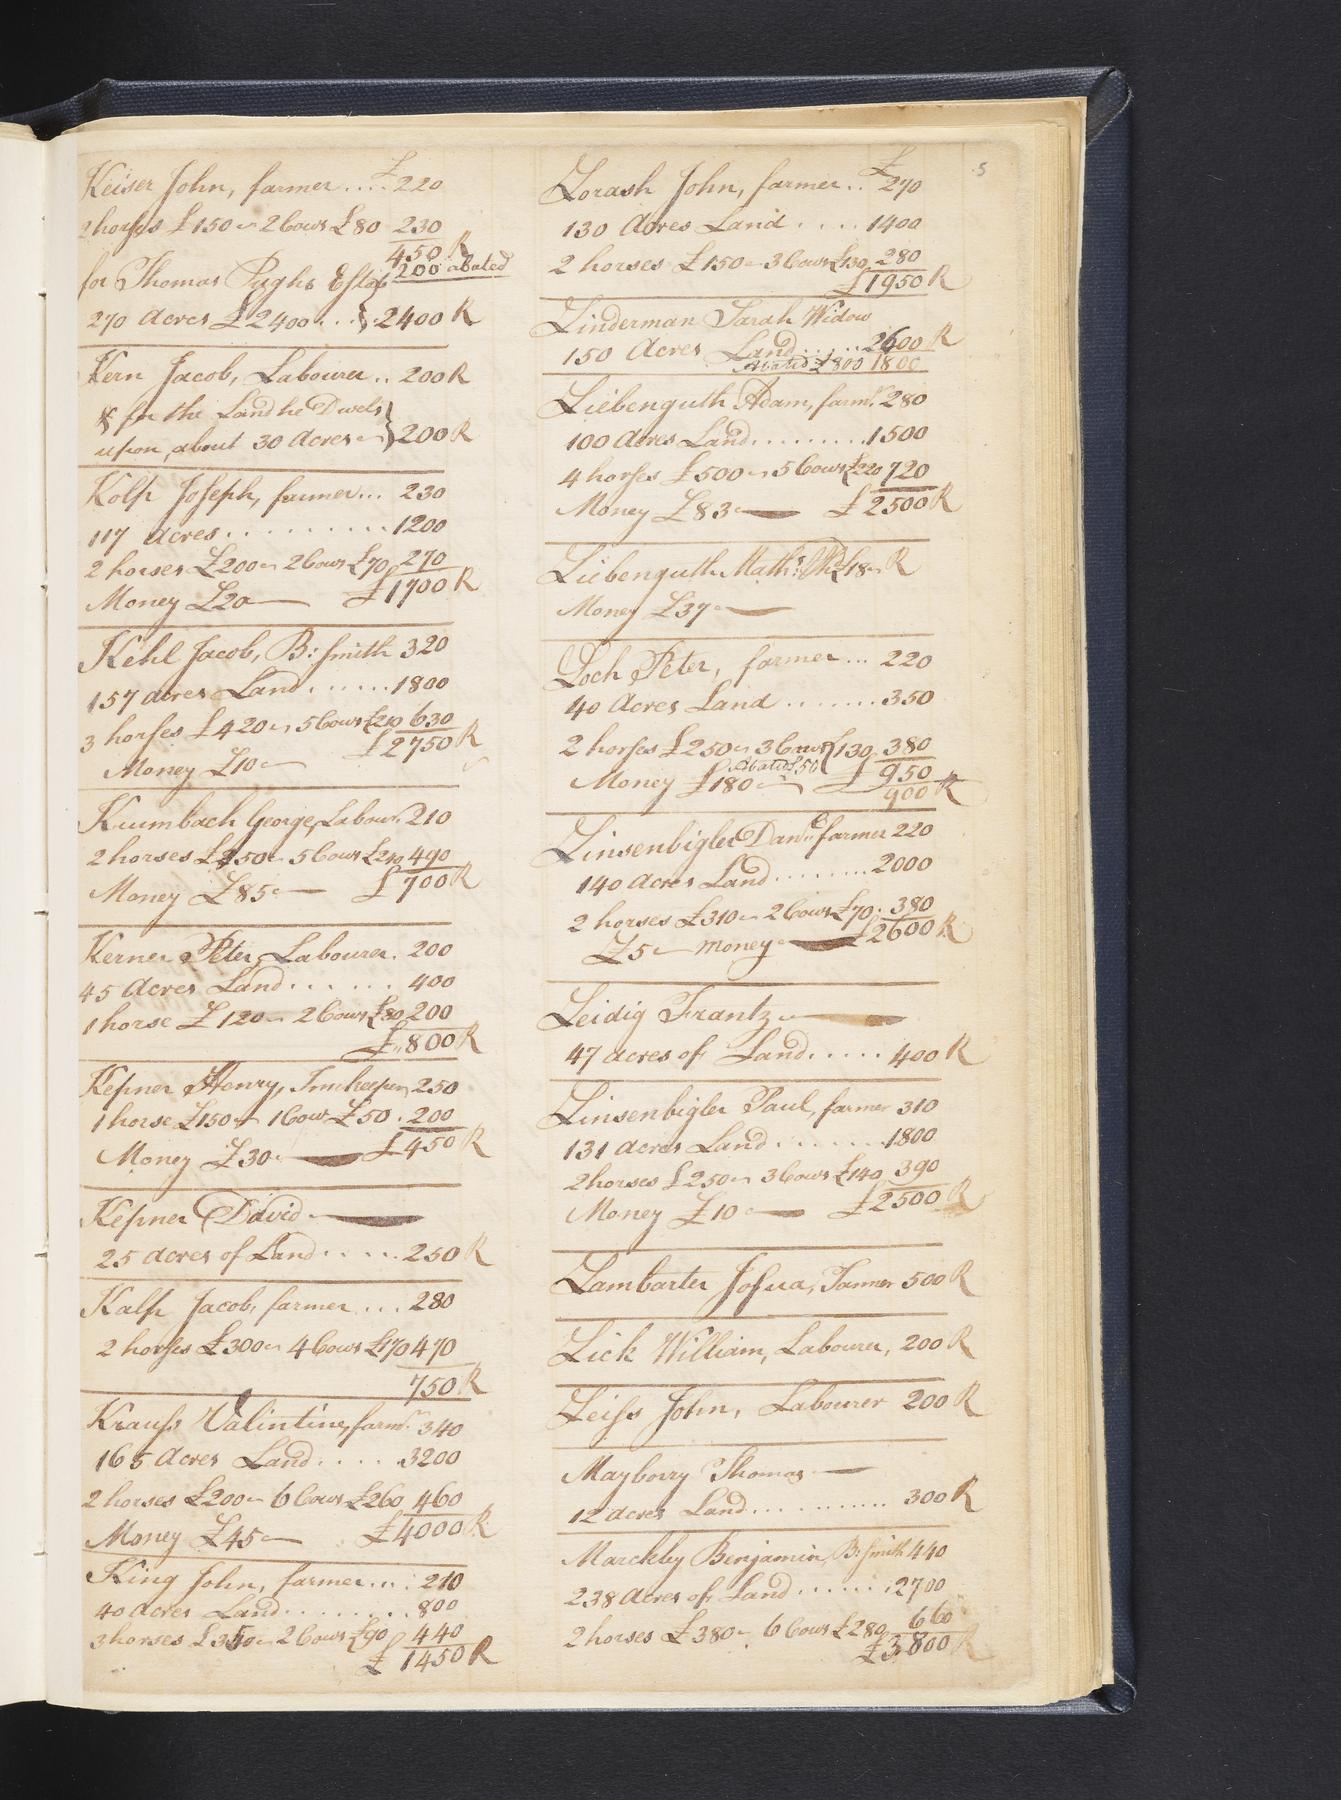 Keiser John, farmer .... £ 220
2 horses £150 ~ 2 Cows £80 230
450 R
200 abated
for Thomas Pughs Esta}
270 acres £2400 ... } 2400 R
Kern Jacob, Labourer .. 200 R
& for the Land he Dwels }
upon, about 30 Acres } 200 R
Kolp Joseph, farmer ... 230
117 acres ......... 1200
2 horses £200 ~ 2 Cows £70 270
Money £20 — £1700 R
Kehl Jacob, B: Smith 320
157 acres Land ...... 1800
3 horses £420 ~ 5 Cows £210 630
£2750 R
Money £10 —
Kumbach George, Labour. 210
2 horses £250 ~ 5 Cows £240 490
Money £85 — £700 R
Kerner Peter, Labourer. 200
45 Acres Land ...... 400
1 horse £120 ~ 2 Cows £80 200
£800 R
Kepner Henry, Innkeeper 250
1 horse £150 ~ 1 Cow £50 . 200
Money £30 — £450 R
Kepner David —
25 acres of Land ..... 250 R
Kalp Jacob, farmer ... 280
2 horses £300 ~ 4 Cows £170 470
750 R
Krauss Valintine, farmr. 340
165 Acres Land .... 3200
2 horses £200 ~ 6 Cows £260 460
Money £45 — £4000 R
King John, farmer .... 210
40 acres Land ........ 800
3 horses £350 ~ 2 Cows £90 440
£ 1450 R
5
Lorash John, farmer .. £ 270
130 Acres Land .... 1400
2 horses £150 ~ 3 Cows £130 280
£1950 R
Linderman Sarah Widow
150 Acres Land ...... 2600 R
Abated £800 1800
Liebenguth Adam, farmr. 280
100 Acres Land ......... 1500
4 horses £500 ~ 5 Cows £220 720
Money £83 — £2500 R
Liebenguth Maths. £18 ~ R
Money £37 —
Loch Peter, farmer ... 220
40 Acres Land ....... 350
2 horses £250 ~ 3 Cows £130 380
Abated £50 £ 950
Money £180 — 900 R
Linsenbigler Danl. farmer 220
140 Acres Land ......... 2000
2 horses £310 ~ 2 Cows £70 . 380
£5 — money — £2600 R
Leidig Frantz —
47 acres of Land ..... 400 R
Linsenbigler Paul, farmer 310
131 acres Land ....... 1800
2 horses £250 ~ 3 Cows £140 390
Money £10 — £2500 R
Lambarter Joshua, Tanner 500 R
Lick William, Labourer, 200 R
Leiss John, Labourer 200 R
Mayborry Thomas —
12 acres Land ........... 300 R
Marckley Benjamin, B: Smith 440
238 Acres of Land ....... 2700
2 horses £380 ~ 6 Cows £280 660
£3,800 R